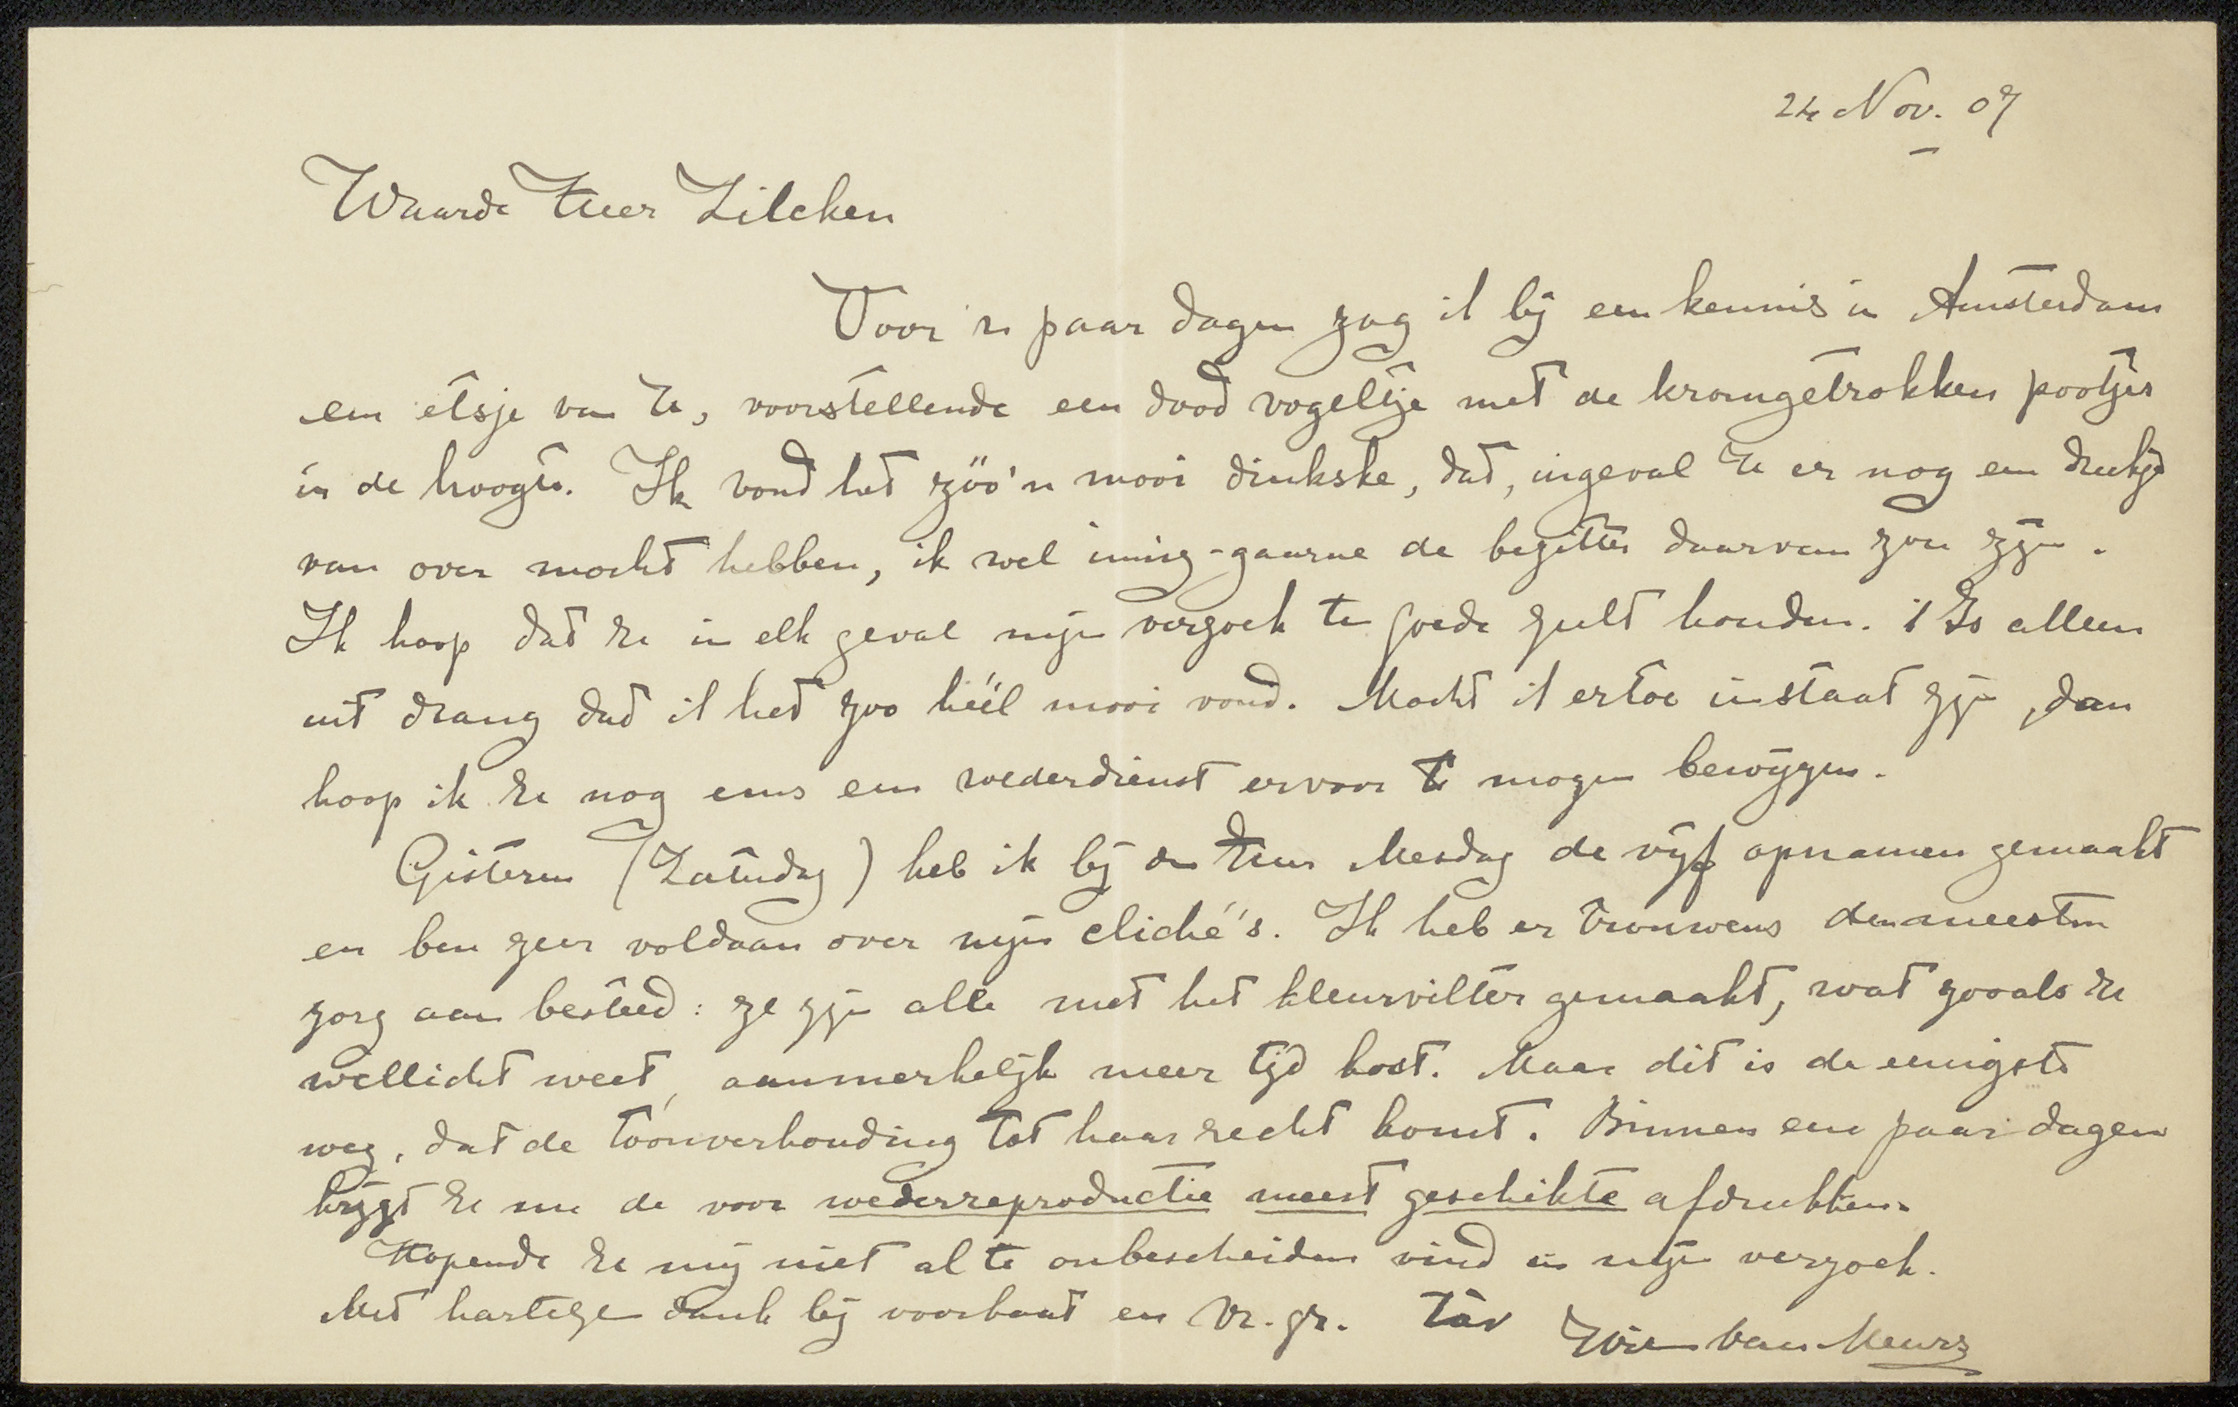 24 Nov. 07
Waarde Heer Zilcken
Voor 'n paar dagen zag ik bij een kennis in Amsterdam
een etsje van U, voorstellende een dood vogeltje met de kromgetrokken pootjes
in de hoogte. Ik vond het zóó'n mooi dinkske, dat, ingeval U er nog een drukje
van over mocht hebben, ik wel innig-gaarne de bezitter daarvan zou zijn.
Ik hoop dat U in elk geval mijn verzoek te goede zult houden. 't Is alleen
uit drang dat ik het zoo héél mooi vond. Mocht ik ertoe in staat zijn, dan
hoop ik U nog eens een wederdienst ervoor te mogen bewijzen.
Gisteren (Zaterdag) heb ik bij den Heer Mesdag de vijf opnamen gemaakt
en ben zeer voldaan over mijn cliché's. Ik heb er trouwens den meesten
zorg aan besteed: ze zijn alle met het kleurvilter gemaakt, wat zooals U
wellicht weet, aanmerkelijk meer tijd kost. Maar dit is de eenigste
weg, dat de toonverhouding tot haar recht komt. Binnen een paar dagen
krijgt U nu de voor wederreproductie meest geschikte afdrukken.
Hopende U mij niet al te onbescheiden vind in mijn verzoek.
Met hartelijke dank bij voorbaat en vr. gr. tàv
van Meurs